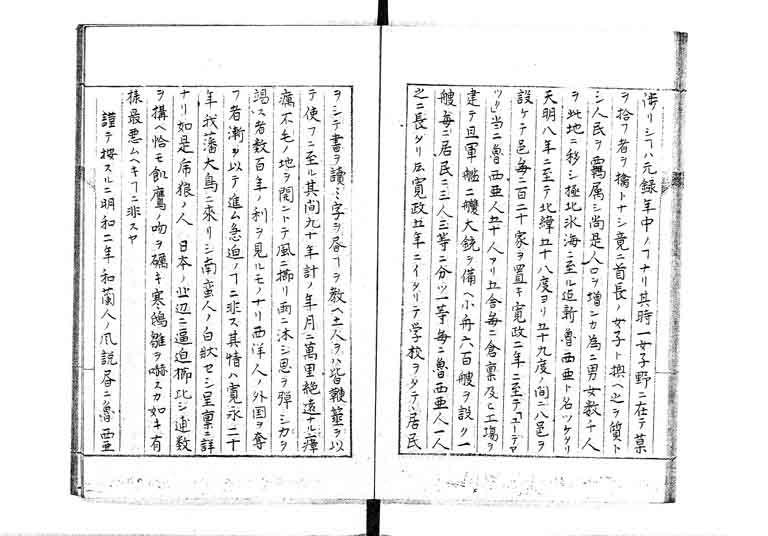 渉リシフハ元録年中ノフナリ其時一女子野ニ在テ菓
ヲ拾フ者ヲ擒トナシ竟ニ首長ノ女子ト換ヘ之ヲ質ト
シ人民ヲ羈属シ尚是人口ヲ増ンカ為ニ男女数千人
ヲ此地ニ移シ極北氷海ニ至ル迠新魯西亜ト名ツケタリ
天明八年ニ至テ北緯五十八度ヨリ五十九度ノ間ニ八邑ヲ
設ケテ邑毎ニ百二十家ヲ置キ寛政二年ニ至テ「ユーデヤ
ツリ」当ニ魯西亜人五十人アリ五舎毎ニ倉稟及ヒ工場ヲ
建テ且軍艦二艘大銃ヲ備ヘ小舟六百艘ヲ設ク一
艘毎ニ居民ニ三人三等ニ分ツ一等毎ニ魯西亜人一人
之ニ長タリ寛政五年ニイタリテ学校ヲタテ居民
ヲシテ書ヲ読ミ字ヲ習フヲ教ヘ土人ヲハ皆鞭箠ヲ以
テ使フニ至ル其間九十年計ノ年月ニ萬里絶遠ナル瘴
癘不毛ノ地ヲ開ントテ風ニ櫛リ雨ニ沐シ思ヲ弾シカヲ
竭ス者数百年ノ利ヲ見ルモノナリ西洋人ノ外国ヲ奪
フ者漸ヲ以テ進ム急迫ノフニ非ス其情ハ寛永二十
年我藩大島ニ來リシ南蛮人ノ白状セシ呈稟ニ詳
ナリ如是乕狼ノ人日本ノ北辺ニ逼迫櫛比シ連数
ヲ搆ヘ恰モ飢鷹ノ吻ヲ礪キ寒鴿雛ヲ嚇スカ如キ有
様最悪ムヘキフニ非スヤ
謹テ按スルニ明和二年和蘭人ノ風説昏ニ魯西亜